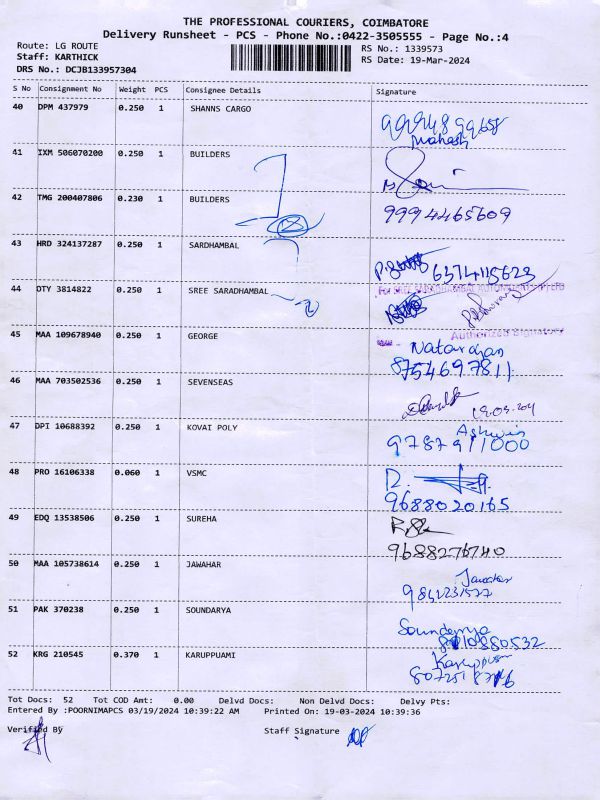 THE PROFESSIONAL COURIERS, COIMBATORE
Delivery Runsheet - PCS - Phone No.:0422-3505555 - Page No.:4
Route: LG ROUTE
RS No.: 1339573
Staff: KARTHICK
RS Date: 19-Mar-2024
DRS No.: DCJB133957304
S No Consignment No Weight PCS Consignee Details Signature
40 DPM 437979 0.250 1 SHANNS CARGO
Mahash
41 IXM 506070200 0.250 1 BUILDERS
42 TMG 200407806 0.230 1 BUILDERS 9994465609
43 HRD 324137287 0.250 1 SARDHAMBAL
6374115623
44 OTY 3814822 0.250 1 SREE SARADHAMBAL
Authorized Signatory
45 MAA 109678940 0.250 1 GEORGE Natarajan
8754697811
46 MAA 703502536 0.250 1 SEVENSEAS
47 DPI 10688392 0.250 1 KOVAI POLY Ashwin
9787911000
48 PRO 16106338 0.060 1 VSMC
9688020165
49 EDQ 13538506 0.250 1 SUREHA
9688276740
50 MAA 105738614 0.250 1 JAWAHAR Jawahar
51 PAK 370238 0.250 1 SOUNDARYA Soundarya
52 KRG 210545 0.370 1 KARUPPUAMI
Tot Docs: 52 Tot COD Amt: 0.00 Delvd Docs: Non Delvd Docs: Delvy Pts:
Entered By :POORNIMAPCS 03/19/2024 10:39:22 AM Printed On: 19-03-2024 10:39:36
Verified By Staff Signature